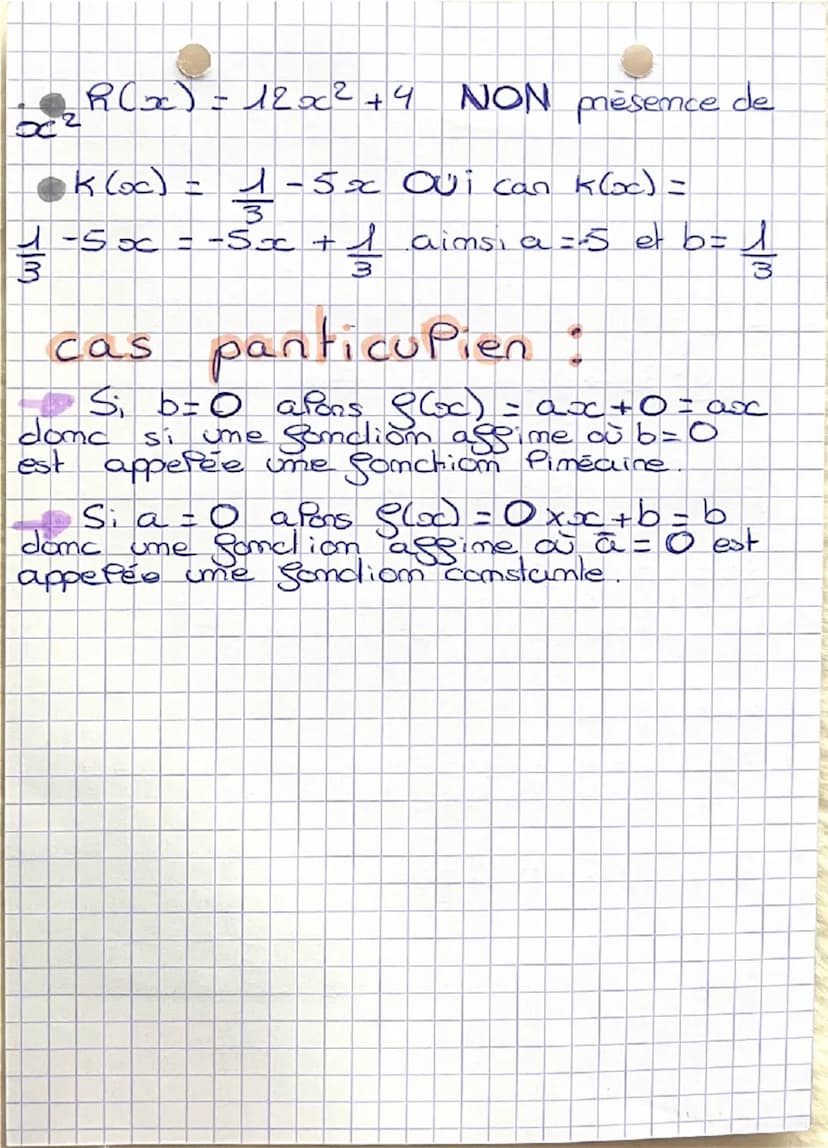 • R(x) = 12x² + 4 NON présence de
x²
• K(x) = 1/3 - 5x OUi car K(x) =
1/3 - 5x = -5x + 1/3 ainsi a = -5 et b = 1/3
cas particulier :
→ Si b = 0 alors f(x) = ax + 0 = ax
donc si une fonction affine où b = 0
est appelée une fonction linéaire.
→ Si a = 0 alors f(x) = 0 × x + b = b
donc une fonction affine où a = 0 est
appelée une fonction constante.